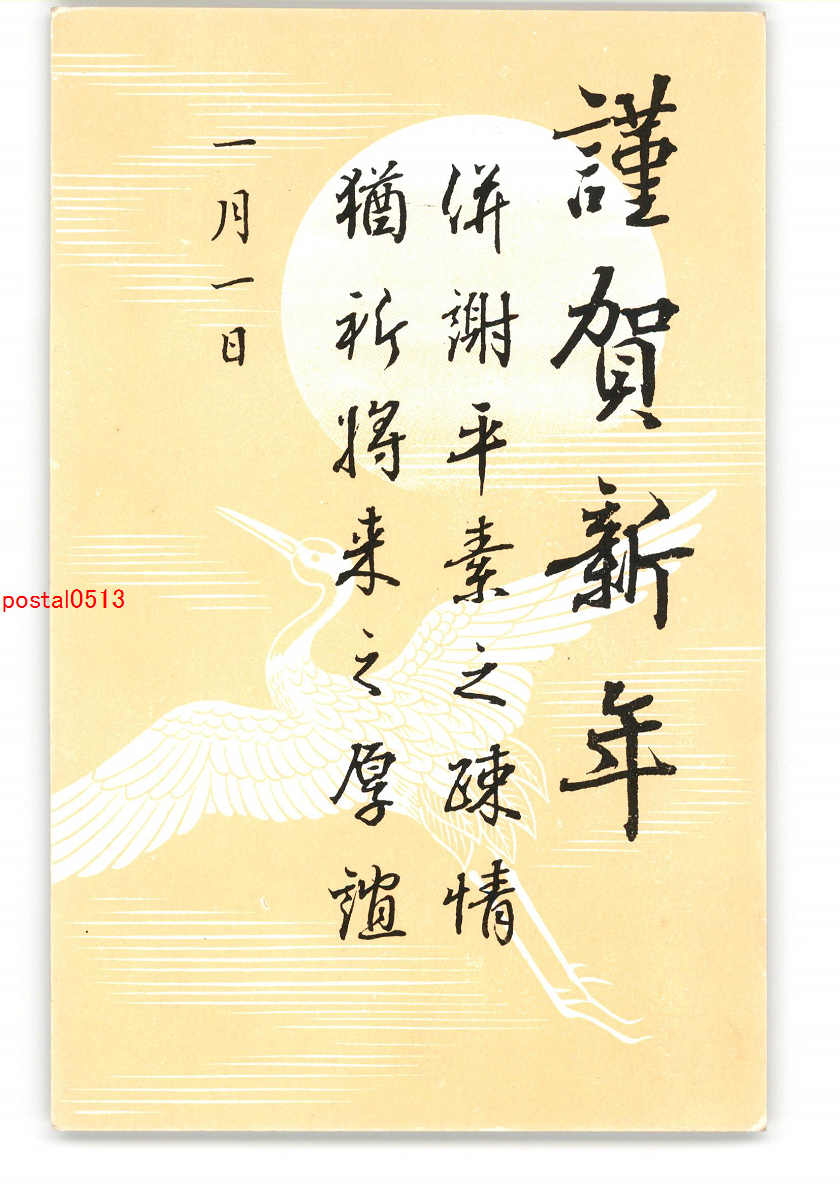 謹賀新年
併謝平素之疎情
猶祈将来之厚誼
一月一日
postal0513